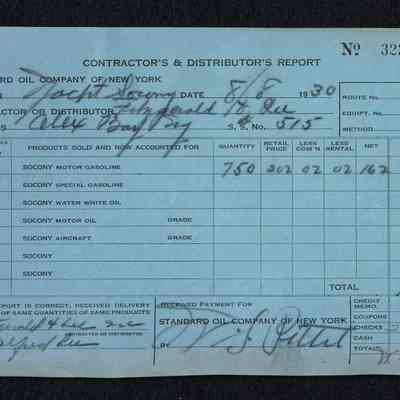 CONTRACTOR'S & DISTRIBUTOR'S REPORT
Nº 323
ARD OIL COMPANY OF NEW YORK
Yacht Socony DATE 8/8 1930
ROUTE No.
ACTOR OR DISTRIBUTOR Fitzgerald & Lee
EQUIPT. No.
S Alex Bay NY S. S. No. 515
METHOD
PRODUCTS SOLD AND NOW ACCOUNTED FOR QUANTITY RETAIL PRICE LESS COM'N LESS RENTAL NET
SOCONY MOTOR GASOLINE 750 202 02 02 162
SOCONY SPECIAL GASOLINE
SOCONY WATER WHITE OIL
SOCONY MOTOR OIL GRADE
SOCONY AIRCRAFT GRADE
TOTAL
EPORT IS CORRECT, RECEIVED DELIVERY
OF SAME QUANTITIES OF SAME PRODUCTS
RECEIVED PAYMENT FOR
STANDARD OIL COMPANY OF NEW YORK
CREDIT MEMO.
COUPONS
CHECKS
CASH
TOTAL
OR DISTRIBUTOR
Lee
BY